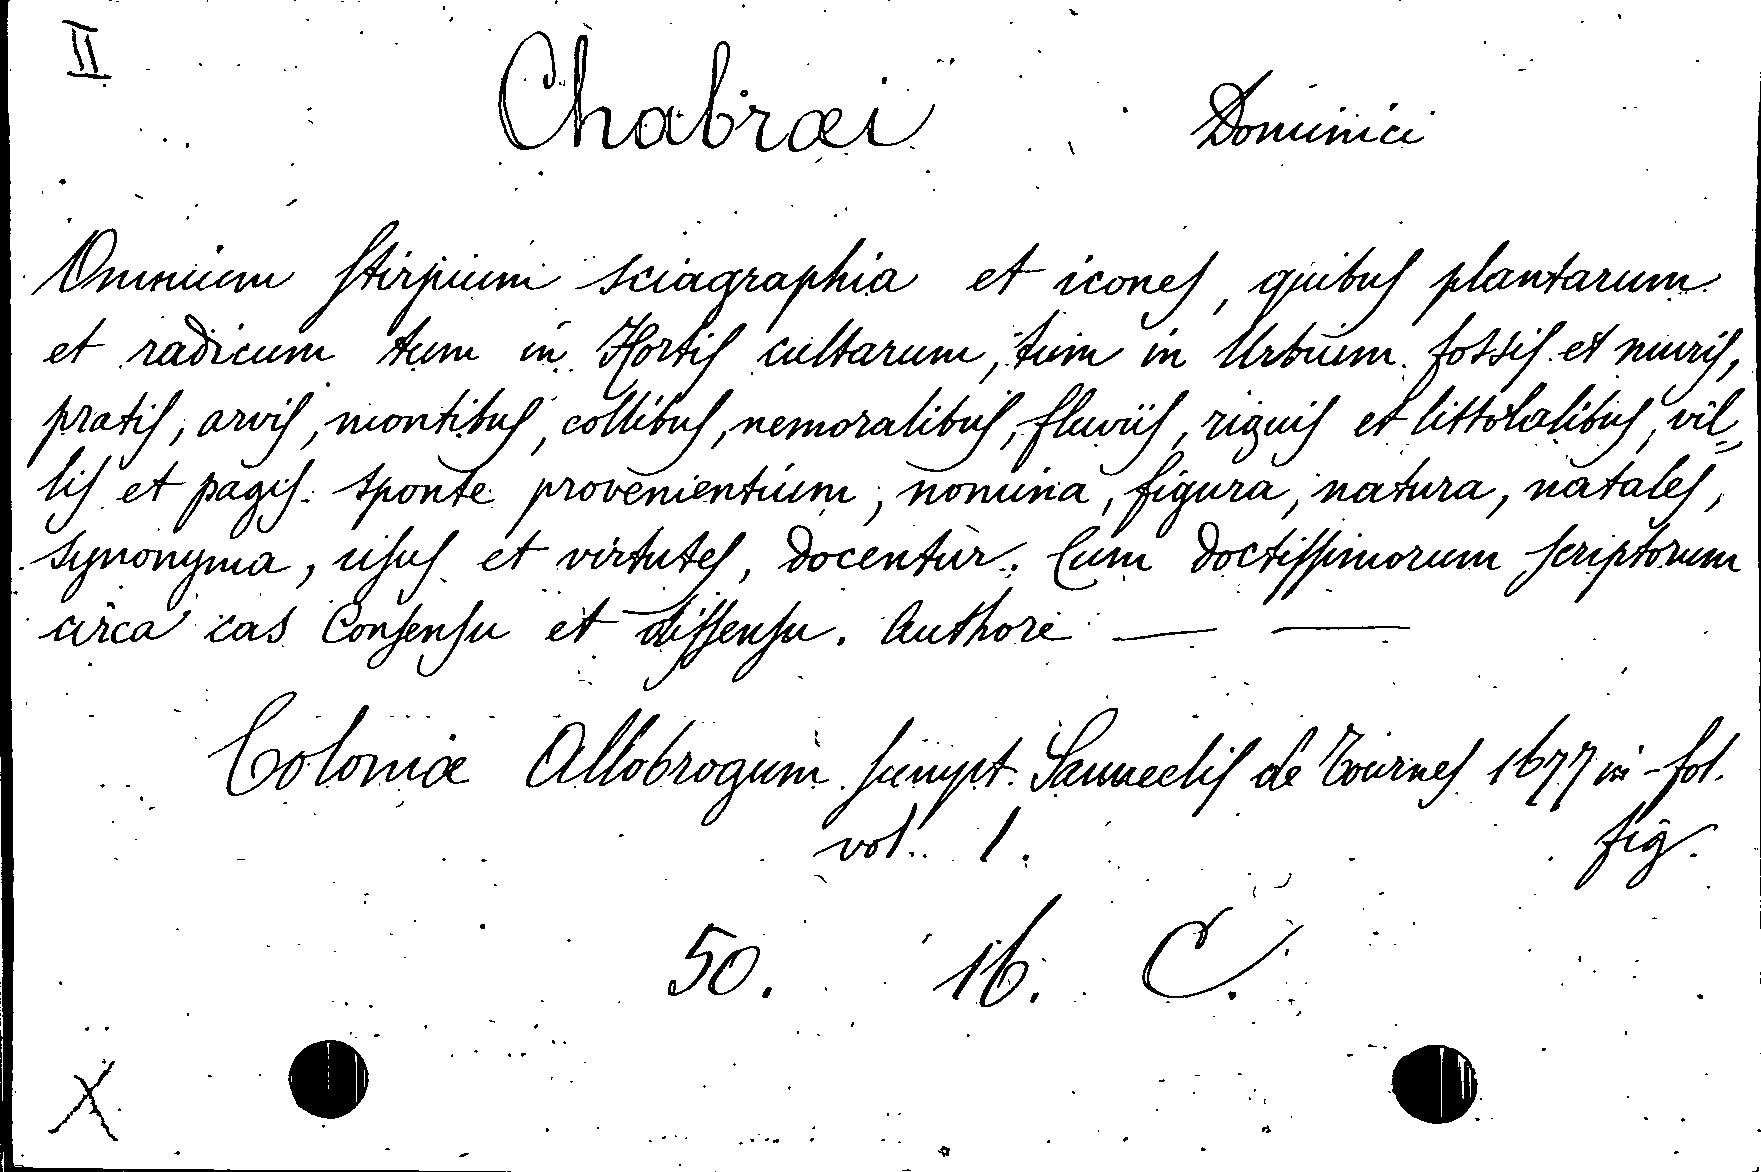 II
Chabræi Dominici
Omnium stirpium sciagraphia et icones, quibus plantarum
et radicum tum in Hortis cultarum, tum in Urbium fossis et muris,
pratis, arvis, montibus, collibus, nemoralibus, fluviis, riguis et littolalibus, vil=
lis et pagis sponte provenientium, nomina, figura, natura, natales,
synonyma, usus et virtutes, docentur. Cum doctissimorum scriptorum
circa eas Consensu et dissensu. Authore — —
Coloniæ Allobrogum sumpt. Samuelis de Tournes 1677 in-fol.
vol. 1. fig.
50. 16. C.
X